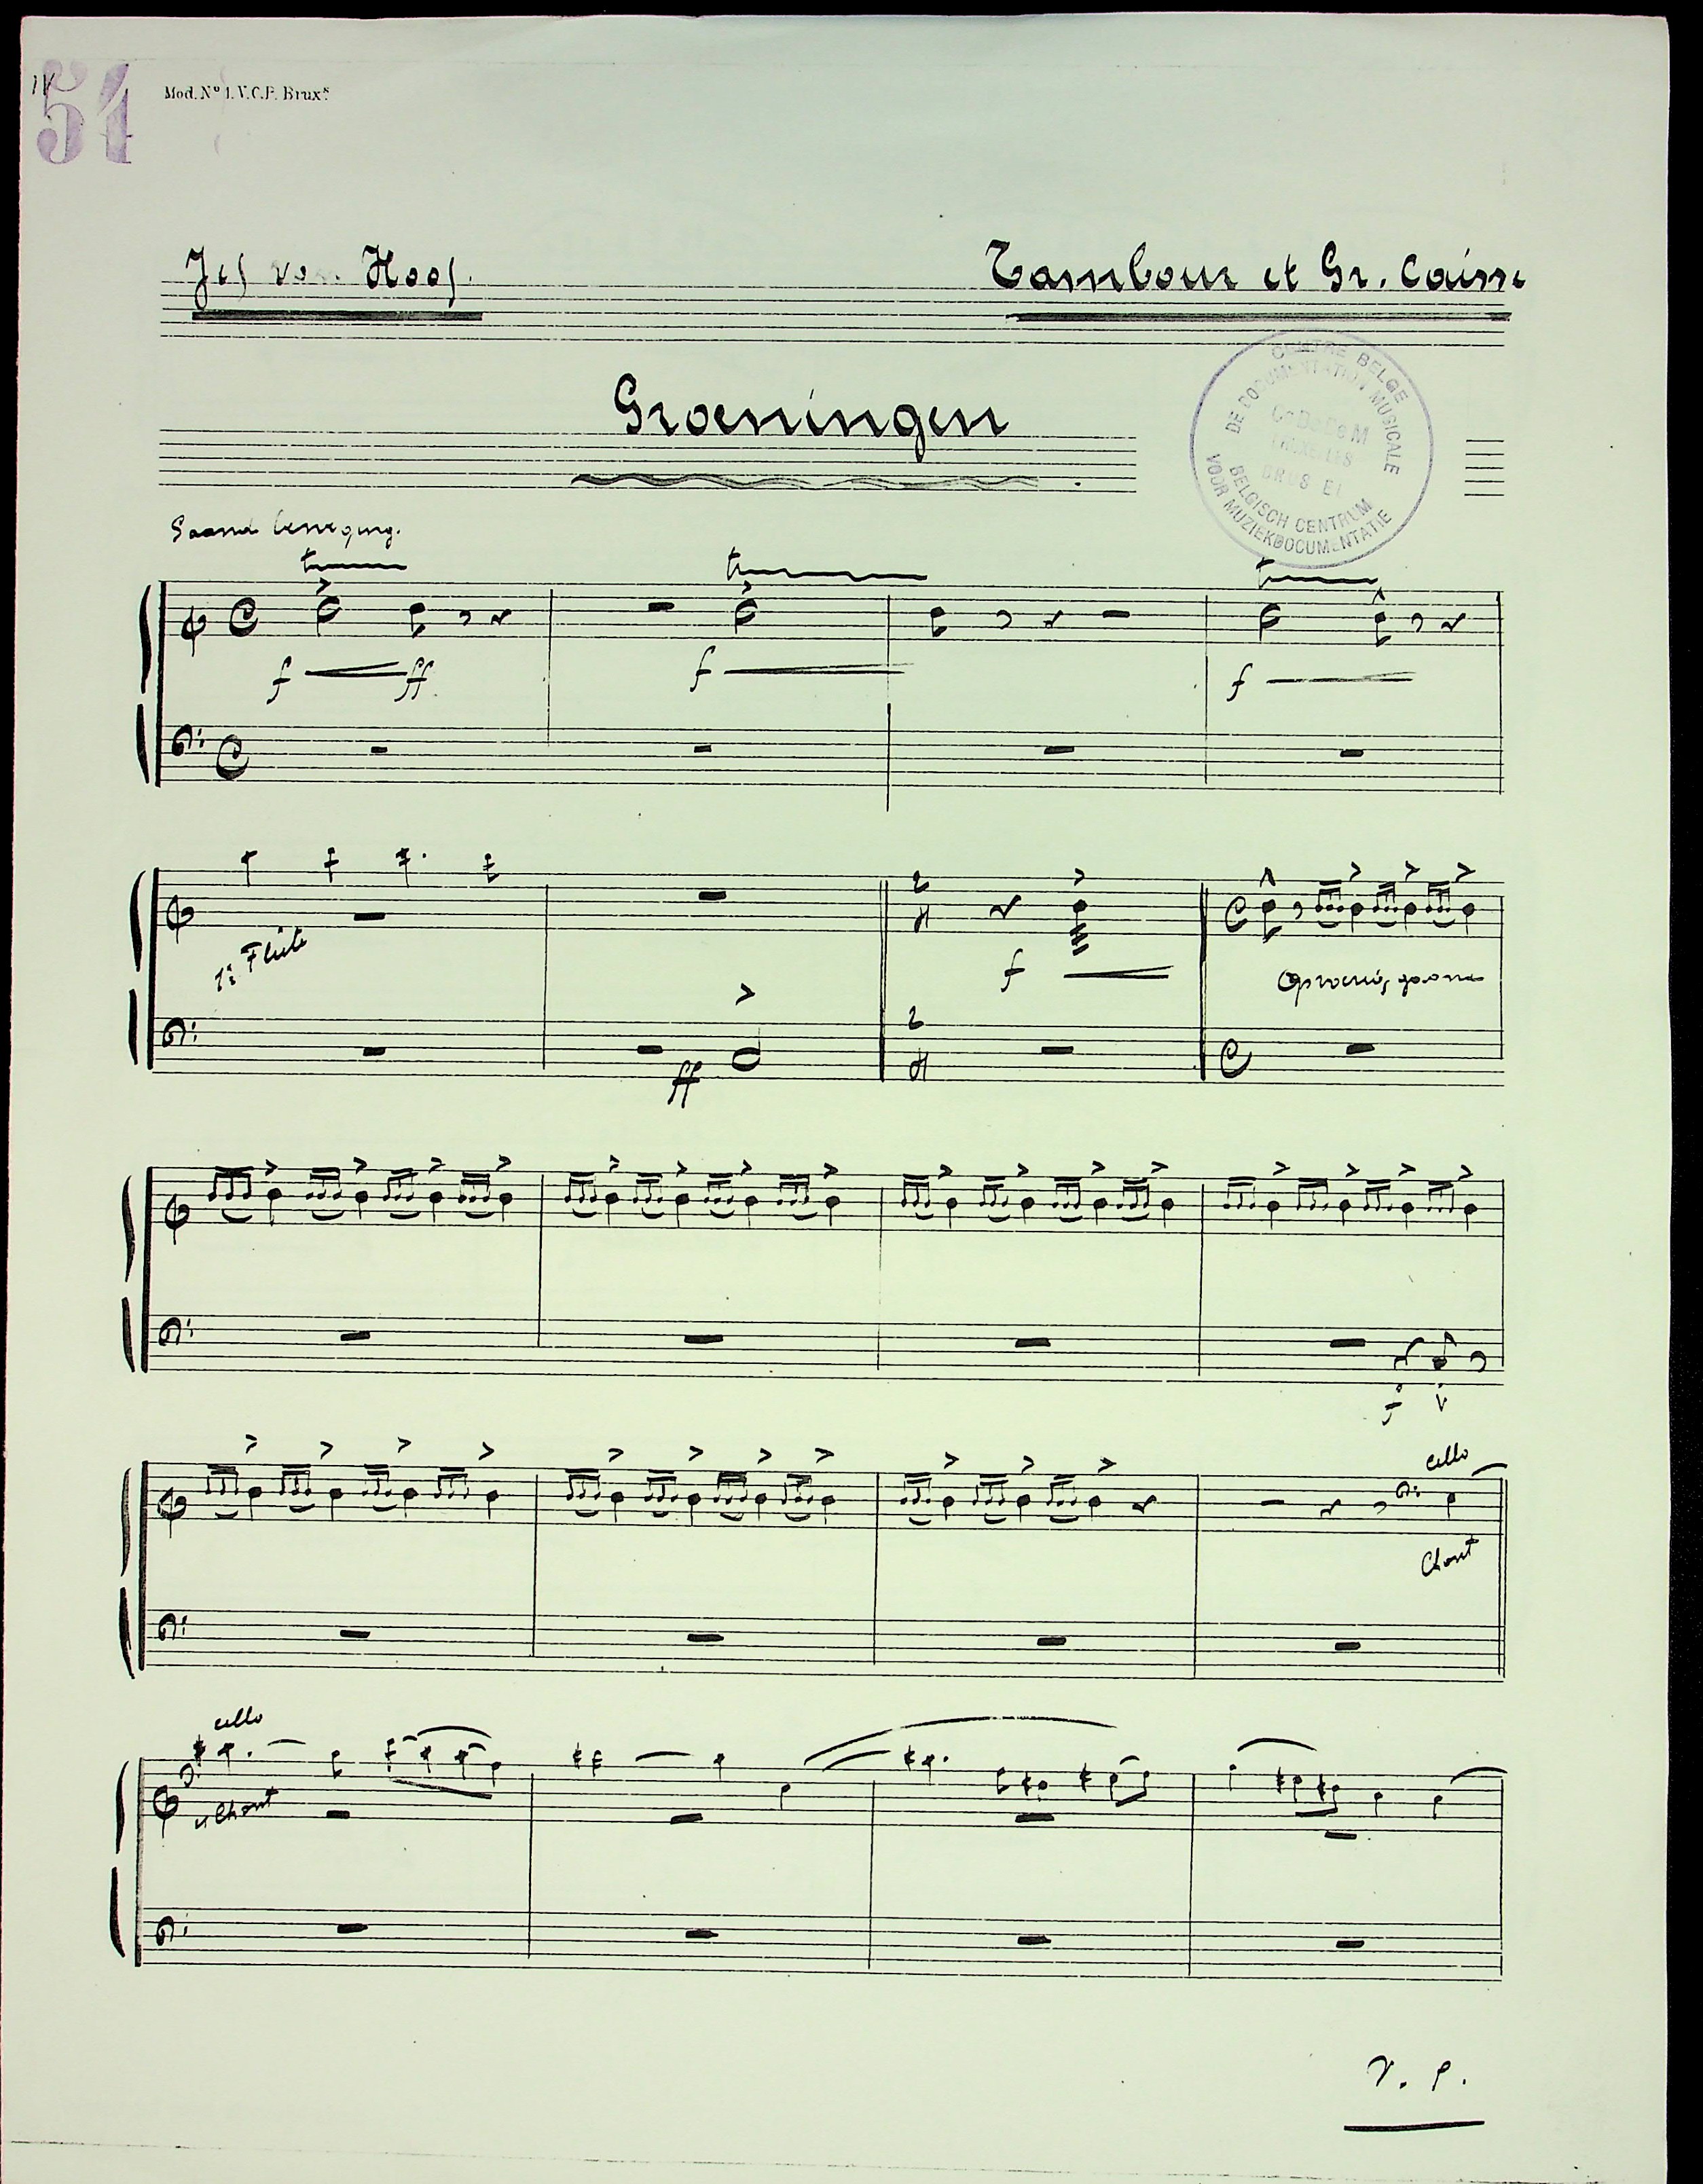 IV
54 Mod. Nº 1. V.C.F. Brux.
Jef van Hoof. Tambour et Gr. Caisse
Groeningen
CENTRE BELGE
DE DOCUMENTATION MUSICALE
CeBeDeM
BRUXELLES
BRUSSEL
BELGISCH CENTRUM
VOOR MUZIEKDOCUMENTATIE
Gaand beweging.
f ff f f
1e Flûte
f
ff
f
cello
Chant
cello
Chant
V. S.